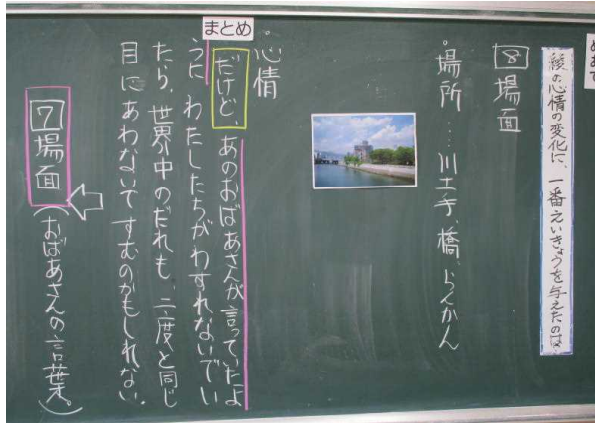 めあて
綾の心情の変化に、一番えいきょうを与えたのは
8場面
・場所…川土手、橋、らんかん
まとめ
・心情
だけど、あのおばあさんが言っていたよ
うに、わたしたちがわすれないでい
たら、世界中のだれも、二度と同じ
目にあわないですむのかもしれない。
7場面
(おばあさんの言葉。)